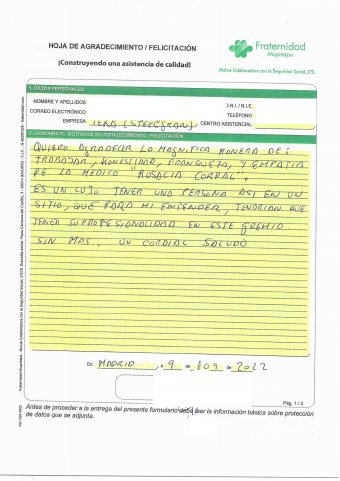 HOJA DE AGRADECIMIENTO / FELICITACIÓN
¡Construyendo una asistencia de calidad!
Fraternidad
Muprespa
Mutua Colaboradora con la Seguridad Social, 275.
1. DATOS PERSONALES
NOMBRE Y APELLIDOS
D.N.I. / N.I.E.
CORREO ELECTRÓNICO
TELÉFONO
EMPRESA
CENTRO ASISTENCIAL
2. DESCRIBA EL MOTIVO DE SU AGRADECIMIENTO / FELICITACIÓN
QUIERO AGRADECER LA MAGNIFICA MANERA DE:
TRABAJAR, HONESTIDAD, FRANQUEZA, Y EMPATIA
DE LA MEDICO "ROSALIA CORRAL".
ES UN LUJO TENER UNA PERSONA ASI EN UN
SITIO, QUE PARA MI ENTENDER, TENDRIAN QUE
TENER SU PROFESIONALIDAD EN ESTE GREMIO
SIN MAS, UN CORDIAL SALUDO
En MADRID, a 9 de 09 de 2022
Pág. 1 / 2
Antes de proceder a la entrega del presente formulario debe leer la información básica sobre protección
de datos que se adjunta.